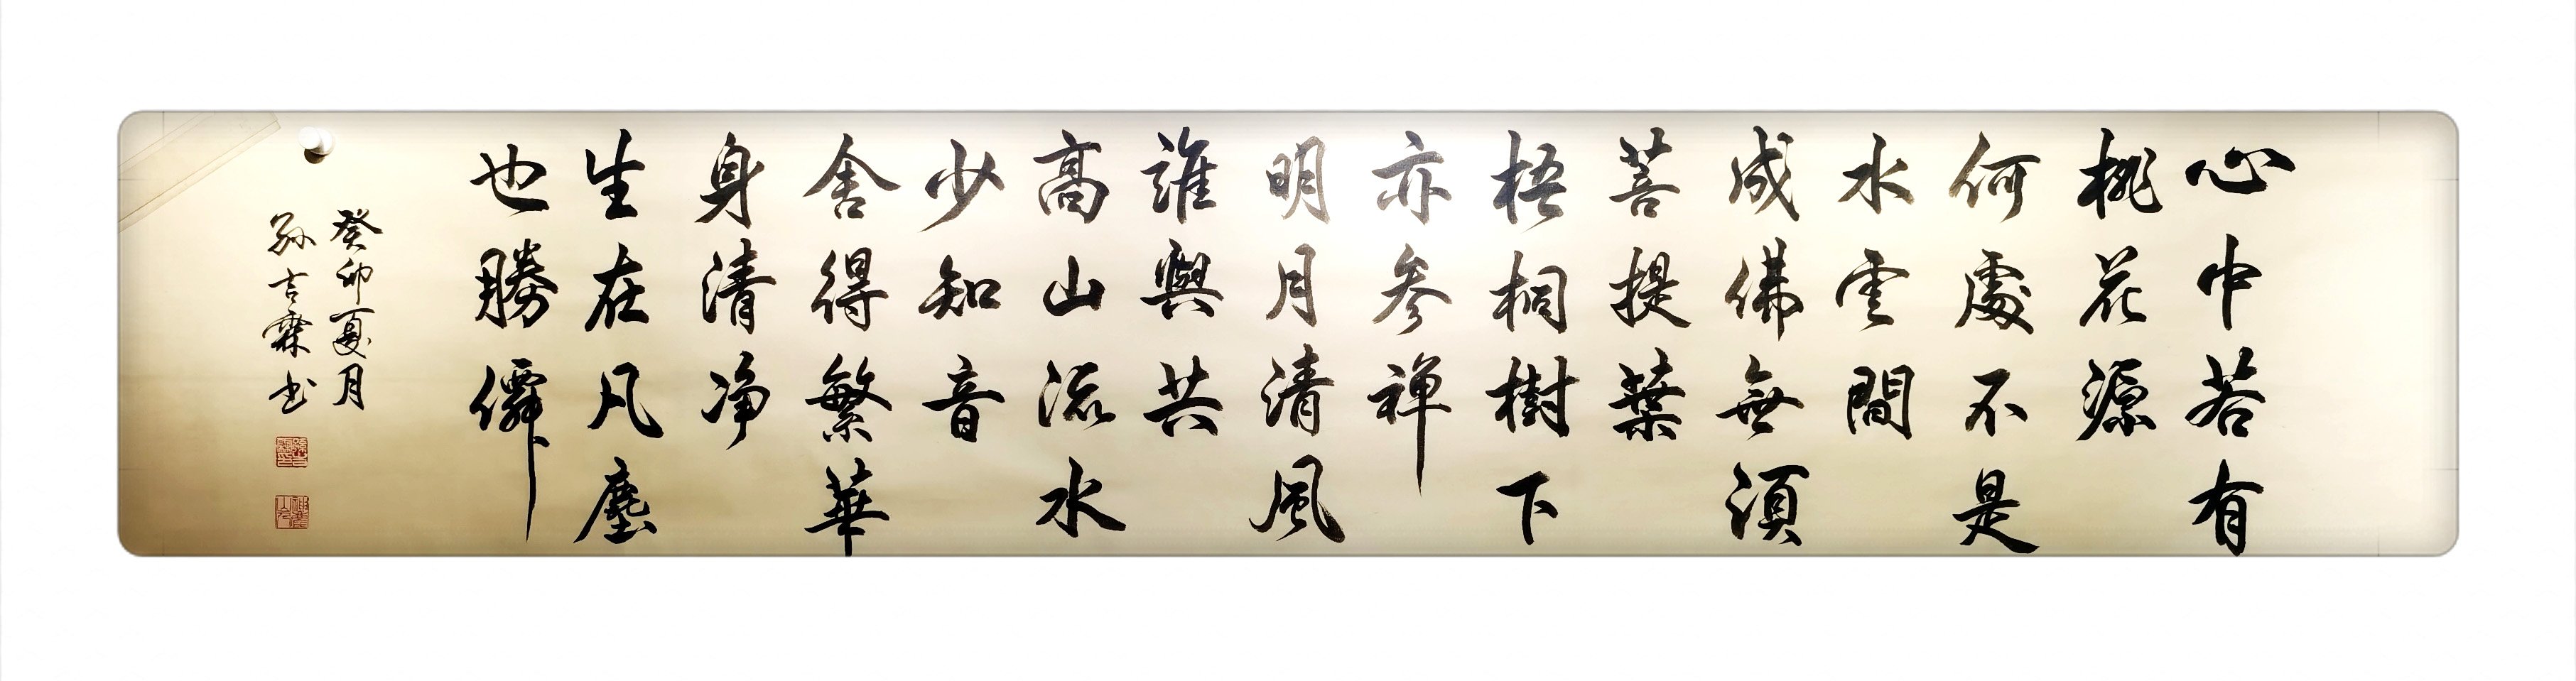 心中若有
桃花源
何處不是
水雲間
成佛無須
菩提葉
梧桐樹下
亦參禪
明月清風
誰與共
高山流水
少知音
舍得繁華
身清净
生在凡塵
也勝僊
癸卯夏月
孫言霖书